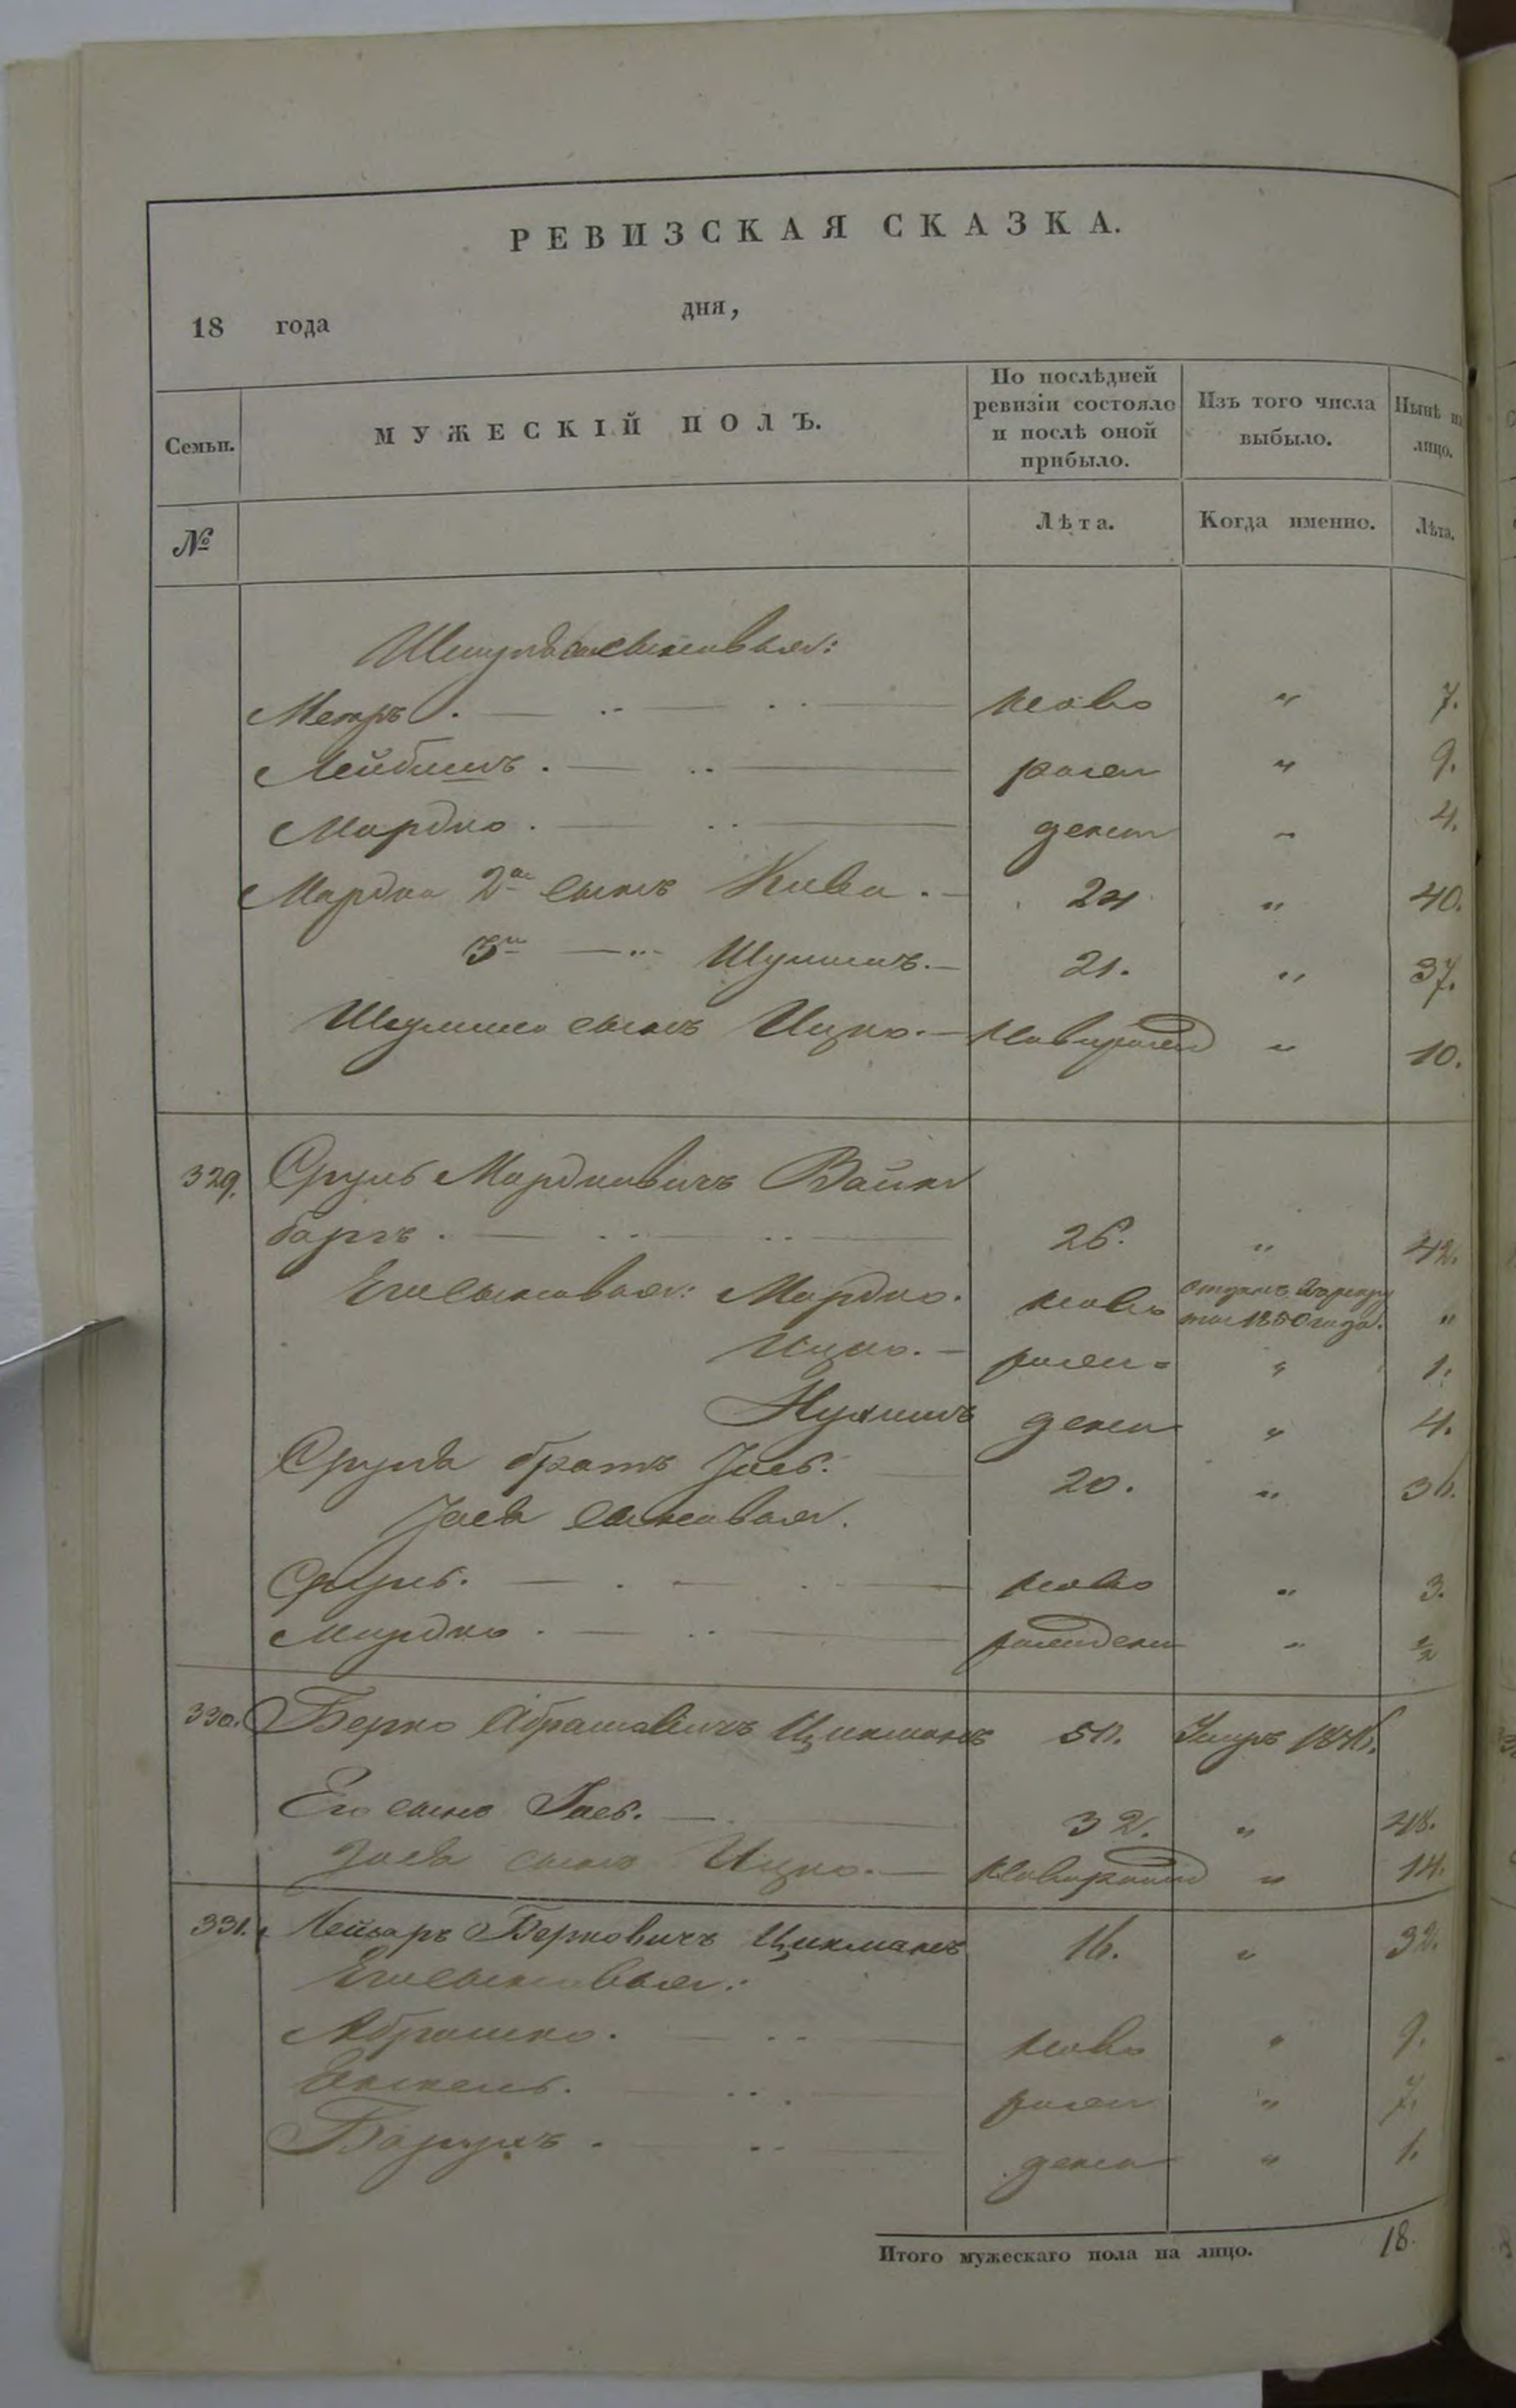 РЕВИЗСКАЯ СКАЗКА.
18 года дня,
Семьи. МУЖЕСКІЙ ПОЛЪ. По послѣдней ревизіи состояло и послѣ оной прибыло. Изъ того числа выбыло. Нынѣ на лицо.
№ Лѣта. Когда именно. Лѣта.
сыновья:
Мееръ . ново " 7.
Лейбишъ . рожен " 9.
Мордко . денны " 4.
Мордка 2й сынъ Кива . 24 " 40.
3й —"— Шулимъ. 21. " 37.
Шулима сынъ Ицко. новорожен " 10.
329. Сруль Мордковичъ Вайн
бергъ . 26. " 42.
Его сыновья: Мордко. ново отданъ въ рекру
ты 1850 года. "
Ицко. рожен " 1.
Нухимъ денны " 4.
Сруля братъ Іось. 20. " 36.
Іося сыновья.
Сруль. ново " 3.
Мордко . рожденны " ½
330. Берко Абрамовичъ Цикманъ 50. Умеръ 1846.
Его сынъ Іось. 32. " 48.
Іося сынъ Ицко. новорожен " 14.
331. Лейзаръ Берковичъ Цикманъ 16. " 32.
Его сыновья:
Абрамко. ново " 9.
рожен " 7.
Борухъ . денны " 1.
Итого мужескаго пола на лицо. 18.